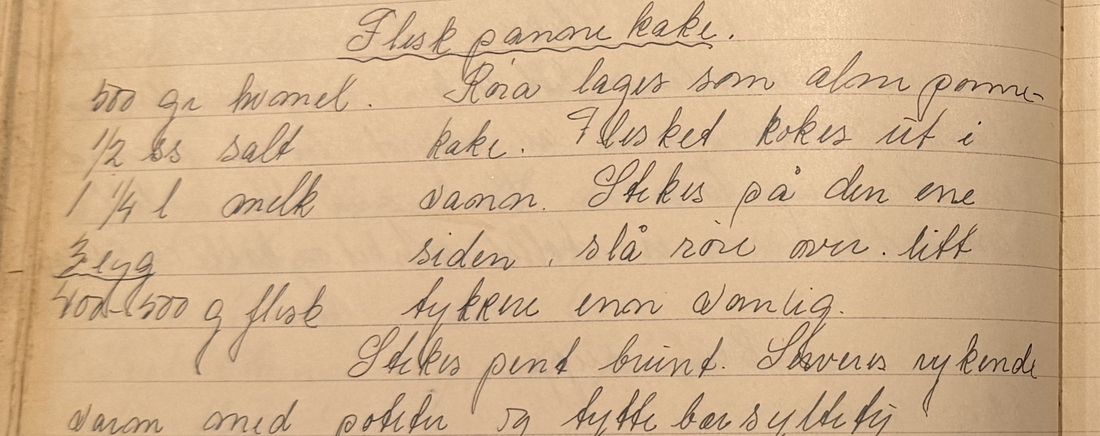 Flesk pannekake.
500 gr hvmel. Röra lages som alm panne-
1/2 ss salt kake. Flesket kokes ut i
1 1/4 l melk vann. Stekes på den ene
3 egg siden, slå röre over. litt
400-500 g flesk tykkere enn vanlig.
Stekes pent brunt. Serveres rykende
varm med poteter og tyttebærsyltetøj